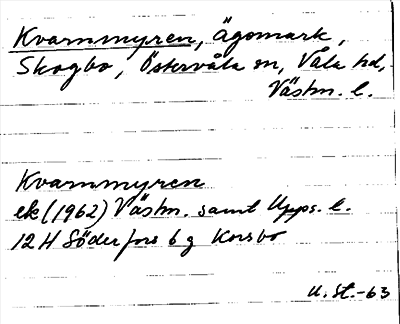 Kvarnmyren, ägomark,
Skogbo, Östervåla sn, Våla hd,
Västm. l.
Kvarnmyren
ek (1962) Västm. samt Upps. l.
12 H Söderfors 6 g Korsbo
U. St.-63